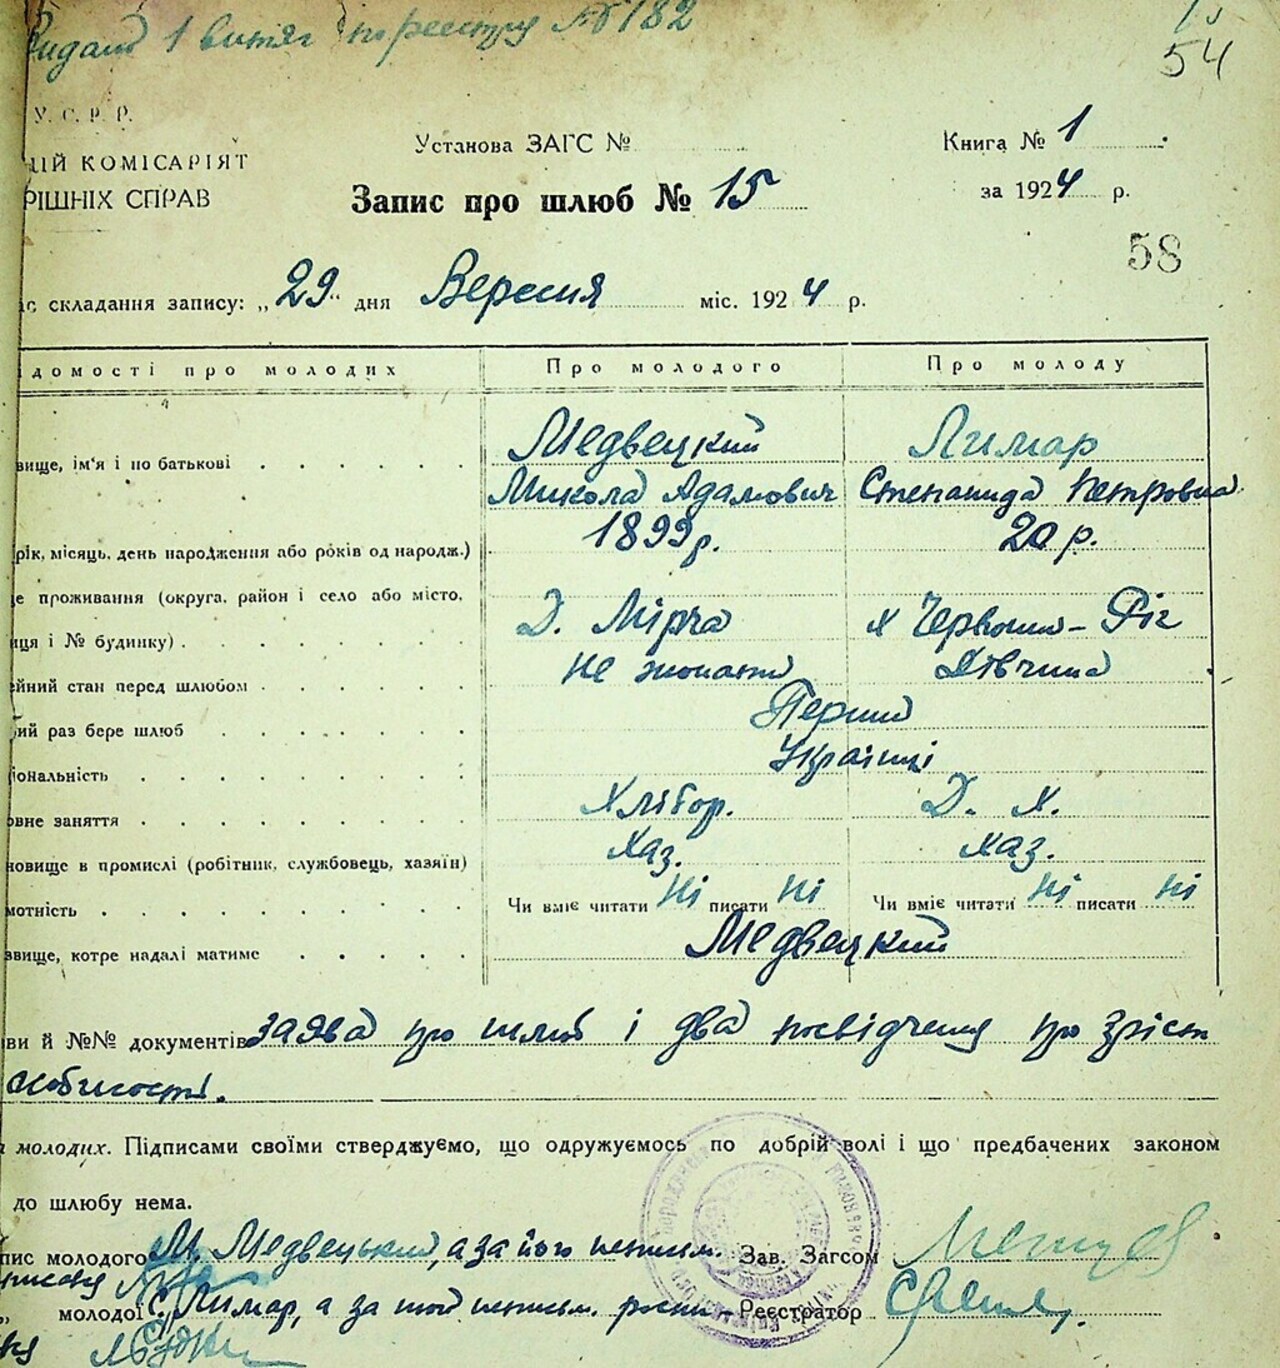 Видано 1 витяг по реєстру № 182
54
У. С. Р. Р.
ЦІЙ КОМІСАРІЯТ
РІШНІХ СПРАВ
Установа ЗАГС №
Книга № 1
Запис про шлюб № 15
за 1924 р.
58
ас складання запису: „29“ дня Вересня міс. 1924 р.
домості про молодих Про молодого Про молоду
Медвецкий Лимар
вище, ім'я і по батькові
Микола Адамович Степанида Петровна
рік, місяць, день народження або років од народж.) 1899 р. 20 р.
е проживання (округа, район і село або місто,
иця і № будинку) Д. Мірча х Червоний-Ріг
ейний стан перед шлюбом Не жонатий Дівчина
ий раз бере шлюб Перший
іональність Українці
овне заняття Хлібор. Д. Х.
новище в промислі (робітник, службовець, хазяїн) Хаз. Хаз.
мотність Чи вміє читати Ні писати Ні Чи вміє читати Ні писати Ні
звище, котре надалі матиме Медвецкий
ви й №№ документів Заява про шлюб і два посвідчення про
особистості.
молодих. Підписами своїми стверджуємо, що одружуємось по добрій волі і що предбачених законом
до шлюбу нема.
пис молодого М. Медвецький, а за його неписьм. Зав. Загсом
„ молодої С. Лимар, а за неписьм. Реєстратор